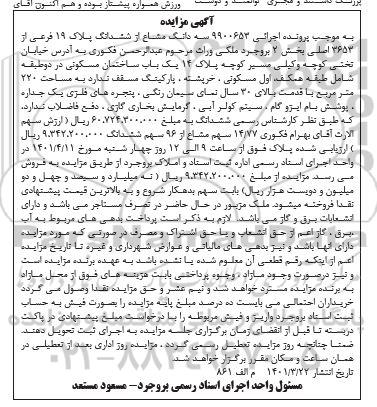 ورزش همواره پیشتاز بوده و هم اکنون آقای
آگهی مزایده
به موجب پرونده اجرائی ۹۹۰۰۶۵۳ سه دانگ مشاع از ششدانگ پلاک ۱۹ فرعی از
۳۶۵۳ اصلی بخش ۲ بروجرد ملکی وراث مرحوم عبدالرحمن فکوری به آدرس خیابان
تختی کوچه وکیلی مسیر کوچه پلاک ۱۴ یک باب ساختمان مسکونی در دوطبقه
شامل طبقه همکف، اول مسکونی، خرپشته، پارکینگ مسقف ندارد به مساحت ۲۲۰
متر مربع با قدمت بالای ۳۰ سال نمای سیمان رنگی، پنجره های فلزی یک جداره
، پوشش بام ایزو گام، سیتم کولر آبی، گرمایش بخاری گازی، دفع فاضلاب ندارد.
که طبق نظر کارشناس رسمی ششدانگ به مبلغ ۶۰.۷۲۴.۳۰۰.۰۰۰ ریال (ارزش سهم
الارث آقای بهرام فکوری ۱۴/۷۷ سهم مشاع از ۹۶ سهم ششدانگ ۹.۳۴۲.۲۰۰.۰۰۰ ریال
) ارزیابی شده پلاک فوق از ساعت ۹ الی ۱۲ روز چهار شنبه مورخ ۱۴۰۱/۴/۱۱ در
واحد اجرای اسناد رسمی اداره ثبت اسناد و املاک بروجرد از طریق مزایده به فروش
می رسد. مزایده از مبلغ ۹.۳۴۲.۲۰۰.۰۰۰ ریال ( نه میلیارد و سیصد و چهل و دو
میلیون و دویست هزار ریال) بابت سهم بدهکار شروع و به بالاترین قیمت پیشنهادی
نقدا فروخته میشود. ملک مزبور در حال حاضر در تصرف مستاجر می باشد و دارای
انشعابات برق و گاز می باشد. لازم به ذکر است پرداخت بدهی های مربوط به آب
،برق، گاز اعم از حق انشعاب و یا حق اشتراک و مصرف در صورتی که مورد مزایده
دارای آنها باشد و نیز بدهی های مالیاتی و عوارض شهرداری و غیره تا تاریخ مزایده
اعم از اینکه رقم قطعی آن معلوم شده یا نشده باشد به عهده برنده مزایده است
و نیز درصورت وجود مازاد، وجوه پرداختی بابت هزینه های فوق از محل مازاد
به برنده مزایده مسترد خواهد شد و نیم عشر و حق مزایده نقدا وصول می گردد
خریداران احتمالی می بایست ده درصد مبلغ پایه مزایده را بصورت فیش به حساب
ثبت اسناد بروجرد واریز و فیش مربوطه را با درخواست مبلغ پیشنهادی در پاکت
دربسته تا قبل از انقضای زمان برگزاری جلسه مزایده به اجرای ثبت تحویل دهند.
ضمنا چنانچه روز مزایده تعطیل رسمی گردد، مزایده روز اداری بعد از تعطیلی در
همان ساعت و مکان مقرر برگزار خواهد شد.
تاریخ انتشار ۱۴۰۱/۳/۲۲ م الف ۸۶۱
مسئول واحد اجرای اسناد رسمی بروجرد- مسعود مستعد